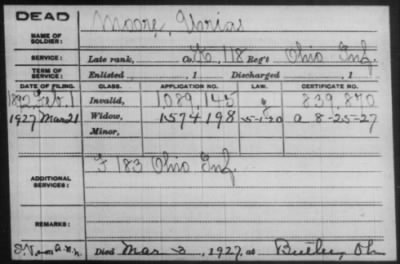 DEAD
NAME OF SOLDIER: Moore, Urias
SERVICE: Late rank, Co. K, 118 Reg't Ohio Inf.
TERM OF SERVICE: Enlisted , 1 Discharged , 1
DATE OF FILING. CLASS. APPLICATION NO. LAW. CERTIFICATE NO.
1892 Feb. 1 Invalid, 1089,145 839,870
1927 Mar 21 Widow, 1574198 5-1-20 a 8-25-27
Minor,
ADDITIONAL SERVICES: F 183 Ohio Inf.
REMARKS:
Died Mar 3, 1927, at Butler, Oh